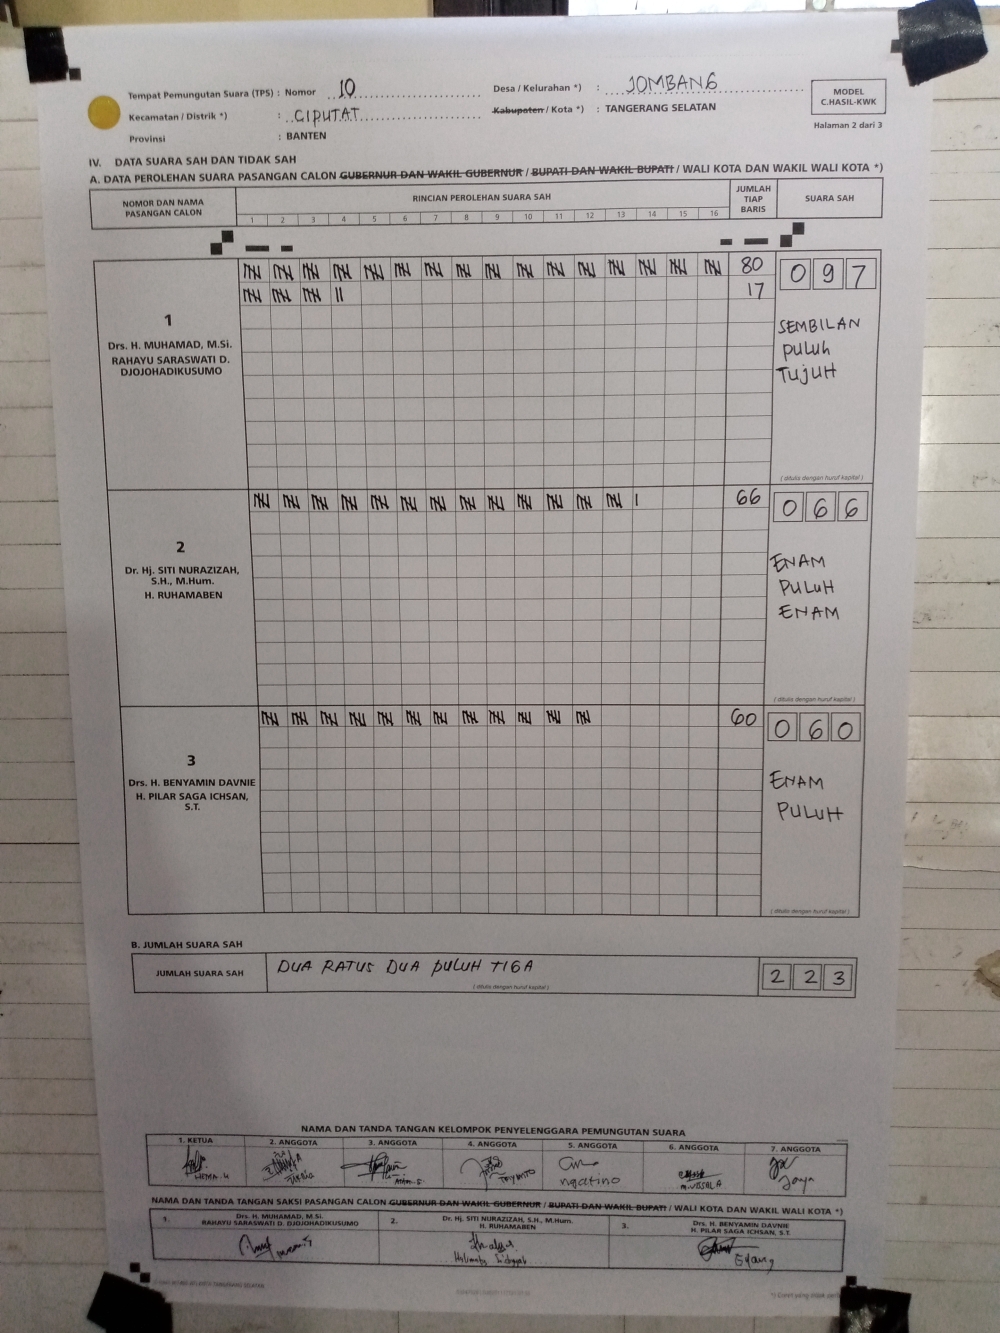 Tempat Pemungutan Suara (TPS) : Nomor 10
Desa / Kelurahan *) : JOMBANG
Kecamatan / Distrik *) : CIPUTAT
Kabupaten / Kota *) : TANGERANG SELATAN
Provinsi : BANTEN
MODEL
C.HASIL-KWK
Halaman 2 dari 3
IV. DATA SUARA SAH DAN TIDAK SAH
A. DATA PEROLEHAN SUARA PASANGAN CALON GUBERNUR DAN WAKIL GUBERNUR / BUPATI DAN WAKIL BUPATI / WALI KOTA DAN WAKIL WALI KOTA *)
NOMOR DAN NAMA
PASANGAN CALON
RINCIAN PEROLEHAN SUARA SAH
1 2 3 4 5 6 7 8 9 10 11 12 13 14 15 16
JUMLAH
TIAP
BARIS
SUARA SAH
1
Drs. H. MUHAMAD, M.Si.
RAHAYU SARASWATI D.
DJOJOHADIKUSUMO
80
17
097
SEMBILAN
PULUH
TUJUH
( ditulis dengan huruf kapital )
2
Dr. Hj. SITI NURAZIZAH,
S.H., M.Hum.
H. RUHAMABEN
66
066
ENAM
PULUH
ENAM
( ditulis dengan huruf kapital )
3
Drs. H. BENYAMIN DAVNIE
H. PILAR SAGA ICHSAN,
S.T.
60
060
ENAM
PULUH
( ditulis dengan huruf kapital )
B. JUMLAH SUARA SAH
JUMLAH SUARA SAH
DUA RATUS DUA PULUH TIGA
( ditulis dengan huruf kapital )
223
NAMA DAN TANDA TANGAN KELOMPOK PENYELENGGARA PEMUNGUTAN SUARA
1. KETUA 2. ANGGOTA 3. ANGGOTA 4. ANGGOTA 5. ANGGOTA 6. ANGGOTA 7. ANGGOTA
ngatino
Jaya
NAMA DAN TANDA TANGAN SAKSI PASANGAN CALON GUBERNUR DAN WAKIL GUBERNUR / BUPATI DAN WAKIL BUPATI / WALI KOTA DAN WAKIL WALI KOTA *)
1. Drs. H. MUHAMAD, M.Si.
RAHAYU SARASWATI D. DJOJOHADIKUSUMO
2. Dr. Hj. SITI NURAZIZAH, S.H., M.Hum.
H. RUHAMABEN
3. Drs. H. BENYAMIN DAVNIE
H. PILAR SAGA ICHSAN, S.T.